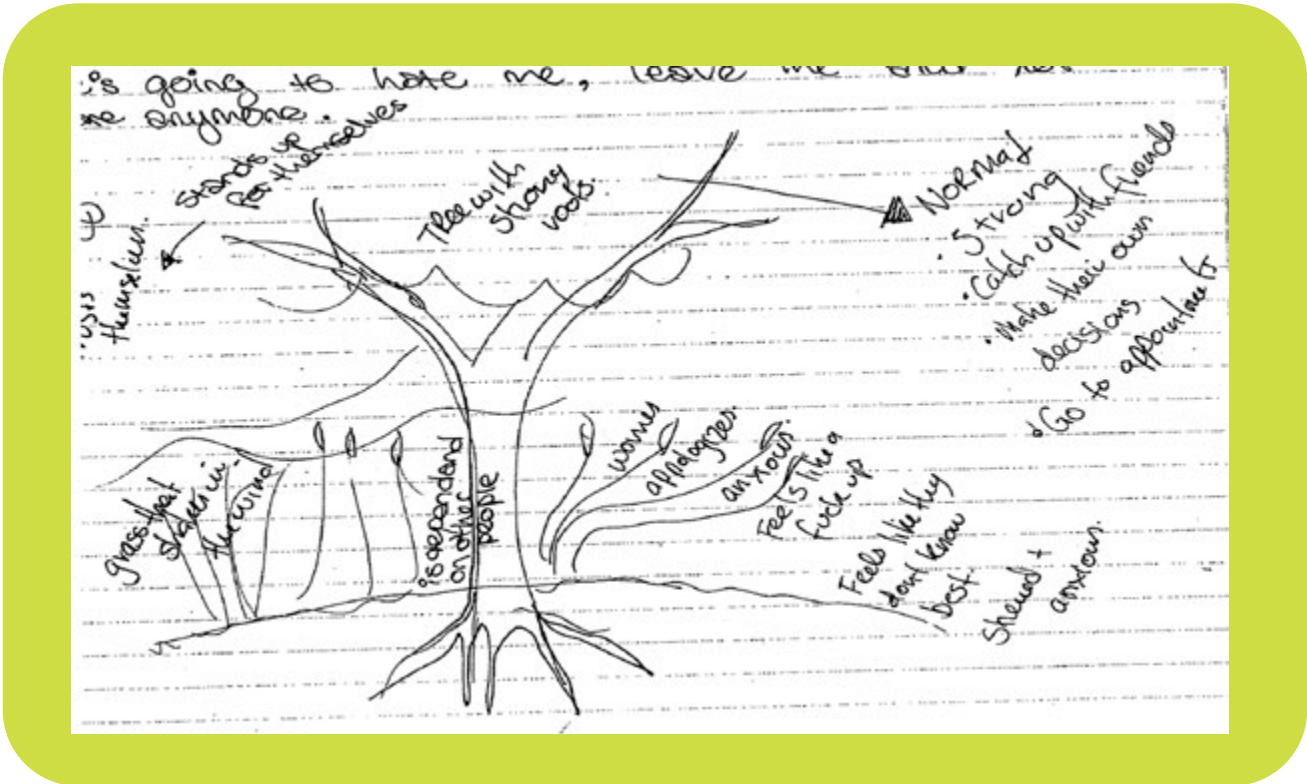 is going to hate me, leave me
me anymore.
stands up
for themselves
themselves.
Tree with
strong
roots.
NORMAL
• Strong
• Catch up with friends
• Make their own
decisions
• Go to appointments
grass that
shakes in
the wind
is dependand
on other
people
worries
appologizes
anxious.
Feels like a
fuck up
Feels like they
dont know
best.
anxious.